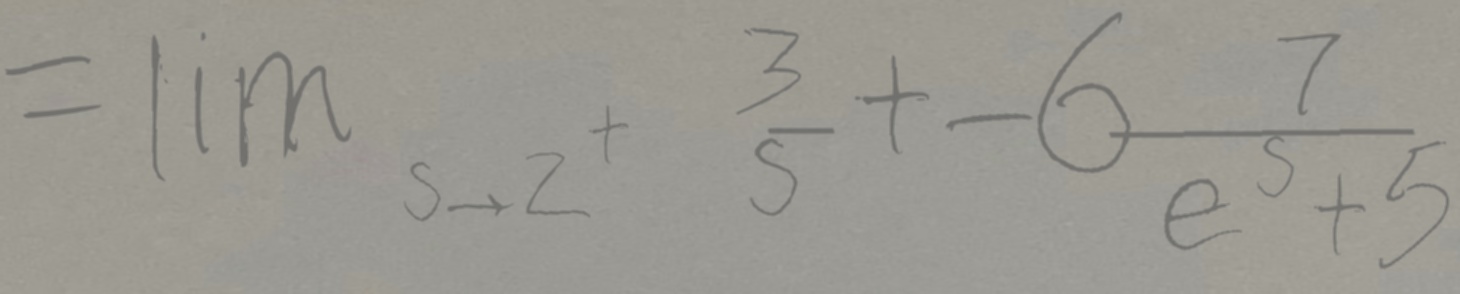 = lim_{s→2^+} \frac{3}{s} + -6 \frac{7}{e^s+5}